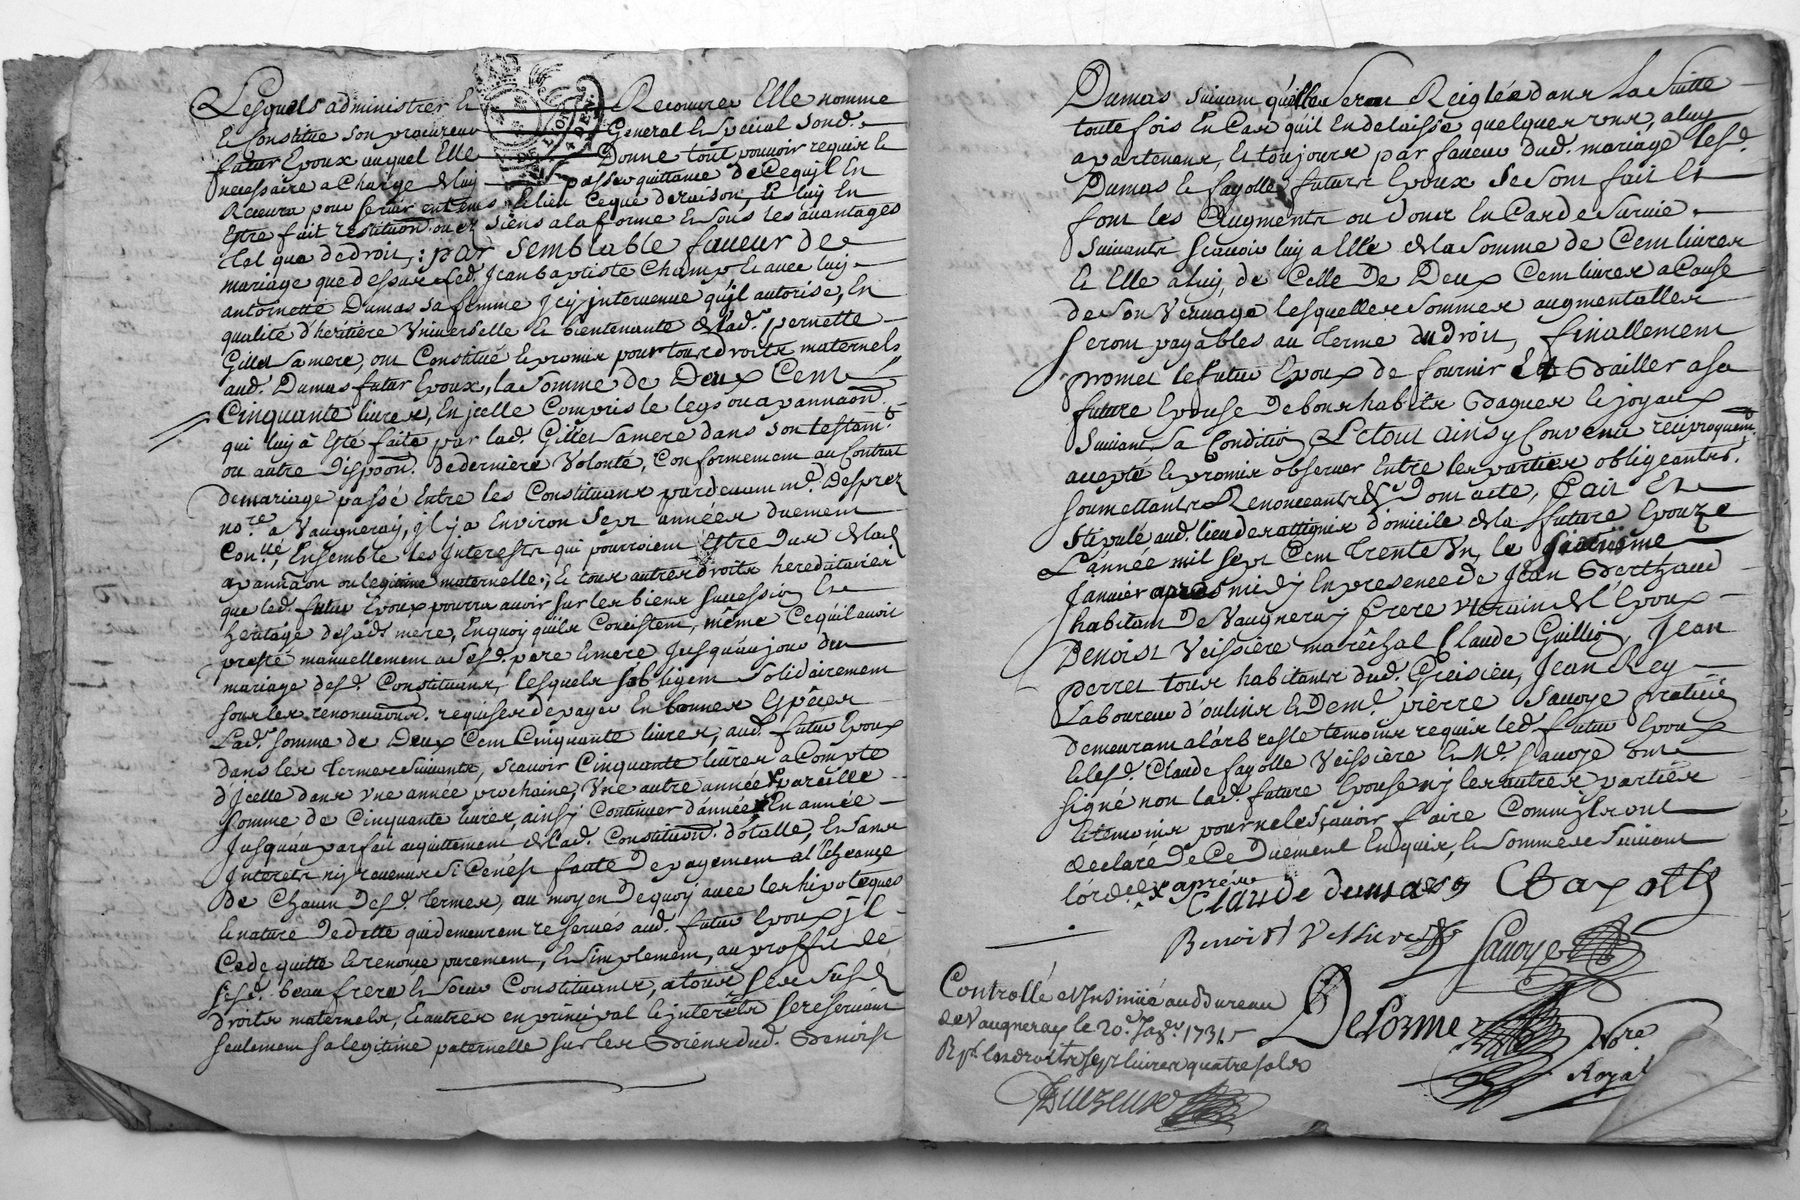 Lesquels administrer Et Recouvrer Elle nomme
Et Constitue son procureur General Et Special sond.
futur Epoux auquel Elle Donne tout pouvoir requis Et
necessaire a Charge de luy passer quittance de Cequil En
Recevra pour servir en tems Et lieu Ceque de raison, Et luy En
Estre fait restitution ou es siens a la forme En sous les avantages
tel que de droit; par semblable faveur de
mariage que dessus Led. Jean baptiste Champ Et avec luy
antoinette Dumas sa femme Jcy intervenue qu'il autorise, En
qualité d'heritiere Vniverselle Et bientenante de lad. pernette
Gillet sa mere, ont Constitué Et promis pour tous droits maternels
aud. Dumas futur Epoux, la somme de Deux Cent
Cinquante livres, En jcelle Compris le legs ou apannaõn
qui luy à Esté faite par lad. Gillet sa mere dans son testamt.
ou autre dispoõn. de derniere Volonté, Conformement au Contrat
de mariage passé Entre les Constituans par devant me. Desprez
nore. a Vaugneray, jl y a Environ Sept années duement
Conllé, Ensemble les Jnterests qui pourroient Estre dus de lad.
apannaõn ou legitime maternelle; Et tous autres droits hereditaires
que led. futur Epoux pourra avoir sur les biens succession Et
heritage desad. mere, En quoy qu'ils Consistent, même Cequ'il avoit
presté manuellement a sesd. pere Et mere Jusqu'au jour du
mariage desd. Constituans, lesquels s'obligent Solidairement
sous les renonciaõns. requises de payer En bonnes Espêces
Lad. somme de Deux Cent Cinquante livres, aud. futur Epoux
dans les termes suivants, sçavoir Cinquante livres a Compte
d'Jcelle dans une année prochaine, Vne autre année pareille
somme de Cinquante livres, ainsy Continuer d'année En année
Jusqu'au parfait acquittement de lad. Constituõn. dotalle, En sans
Jnterets ny revenus Si Cen'est faute De payement a l'Echeance
De Chacun Desd. termes, au moyen Dequoy avec les hipoteques
Et nature de dette qui demeurent reservés aud. futur Epoux jl
Cede quitte Et renonce purement, Et simplement, au proffit de
sesd. beau frere Et soeur Constituants, a tous ses susd.
droits maternels, Et autres en principal Et interêts se reservant
seulement sa legitime paternelle sur les Biens dud. Benoist
Dumas suivant qu'elle sera Reiglée dans La Suitte
toute fois En Cas quil En delaisse quelques uns, a luy
apartenans, Et toujours par faveur dud. mariage Lesd.
Dumas Et fayolle futurs Epoux Se sont fait Et
font les Augments ou donnes En Cas de Survie
Suivants Sçavoir luy a Elle de la somme de Cent livres
Et Elle a luy, de Celle De Deux Cent livres a Cause
de son Veuvage lesquelles sommes augmentalles
seront payables au terme du droit, finallement
promet le futur Epoux de fournir Et Bailler a sa
future Epouse De bons habits Bagues Et joyaux
Suivant sa Condition Et tout ainsy Convenu reciproquemt.
accepté Et promis observer Entre les parties obligeantes.
soumettants Renonceants &c dont acte, fait Et
stipulé aud. lieu de rattignie d'omicile de la future Epouze
L'année mil sept Cent Trente Vn, le Sixieme
Janvier apres midy En presence de Jean Berthaud
habitant De Vaugneray frere Vterain de l'Epoux
Benoist Veissiere maréchal Claude Guillion, Jean
Perret tous habitants dud. Greisieu, Jean Rey
Laboureur d'oulins Et De me. pierre Savoye praticie
demeurant a l'arbresle temoins requis led. futur Epoux
Et lesd. Claude fayolle Veissiere Et Me. Savoye ont
signé non lad. future Epouse ny les autres parties
Et temoins pour ne le Sçavoir faire Comme Jls ont
declaré De Ce Duement Enquis, Et Sommes Suivant
l'ord.ce
Claude dumas
Benoist Vessiere
Savoye
Controllé et Insinué au Bureau
de Vaugneray le 20e. Jav. 1731
Rt. les droits sept livres quatre sols
Delorme
Nore.
Royal